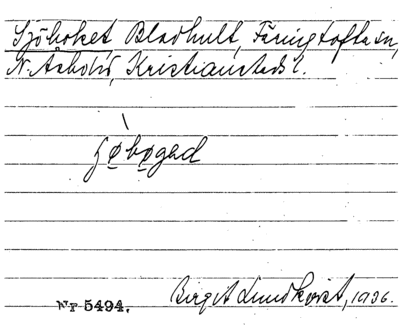 Sjöhoket Bladhult, Färingtofta sn,
N. Åsbo hd, Kristianstads l.
ʃø̀bogad
Nr 5494. Birgit Lundkvist, 1936.